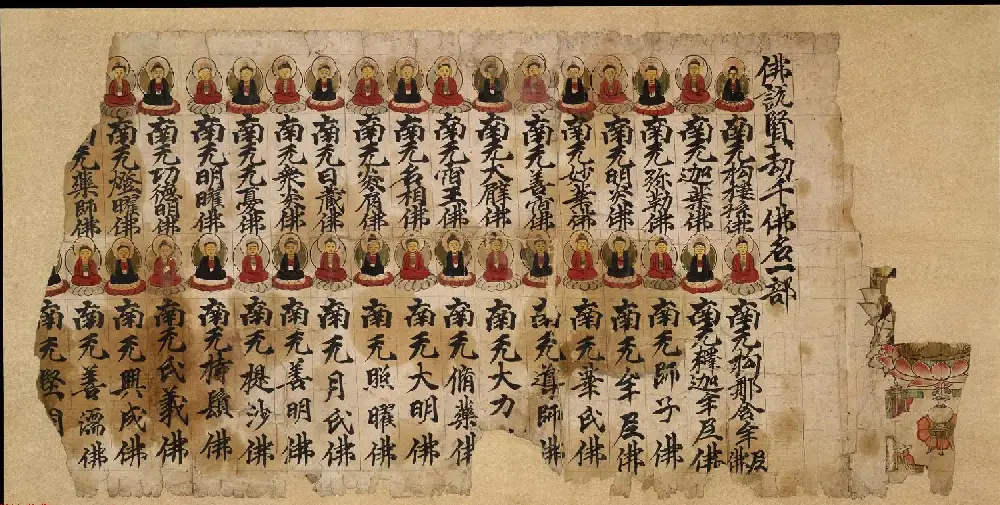 佛説賢劫千佛名一部
南无拘樓孫佛
南无拘那含牟尼佛
南无迦葉佛
南无釋迦牟尼佛
南无弥勒佛
南无師子佛
南无明炎佛
南无牟尼佛
南无妙華佛
南无華氏佛
南无善宿佛
南无導師佛
南无大臂佛
南无大力
南无宿王佛
南无脩藥佛
南无名相佛
南无大明佛
南无炎肩佛
南无照曜佛
南无日藏佛
南无月氏佛
南无衆炎佛
南无善明佛
南无无憂佛
南无提沙佛
南无明曜佛
南无持鬘佛
南无功德明佛
南无氏義佛
南无燈曜佛
南无興成佛
南无藥師佛
南无善濡佛
南无堅